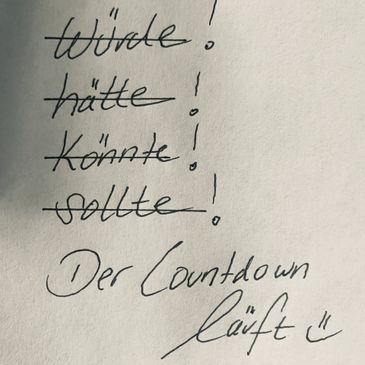 Würde!
hätte!
Könnte!
sollte!
Der Countdown
läuft ü